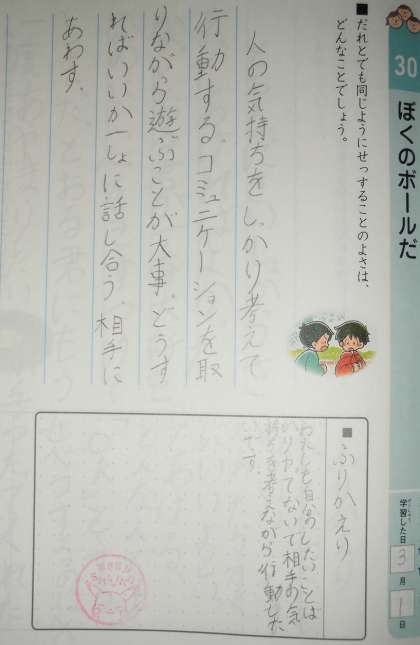 30
ぼくのボールだ
学習した日
3月1日
■だれとでも同じようにせっすることのよさは、
どんなことでしょう。
人の気持ちをしっかり考えて
行動する。コミュニケーションを取
りながら遊ぶことが大事。どうす
ればいいか一しょに話し合う。相手に
あわす。
■ふりかえり
わたしも自分のしたいことば
かりやてないで相手の気
持ちを考えながら行動した
いです。